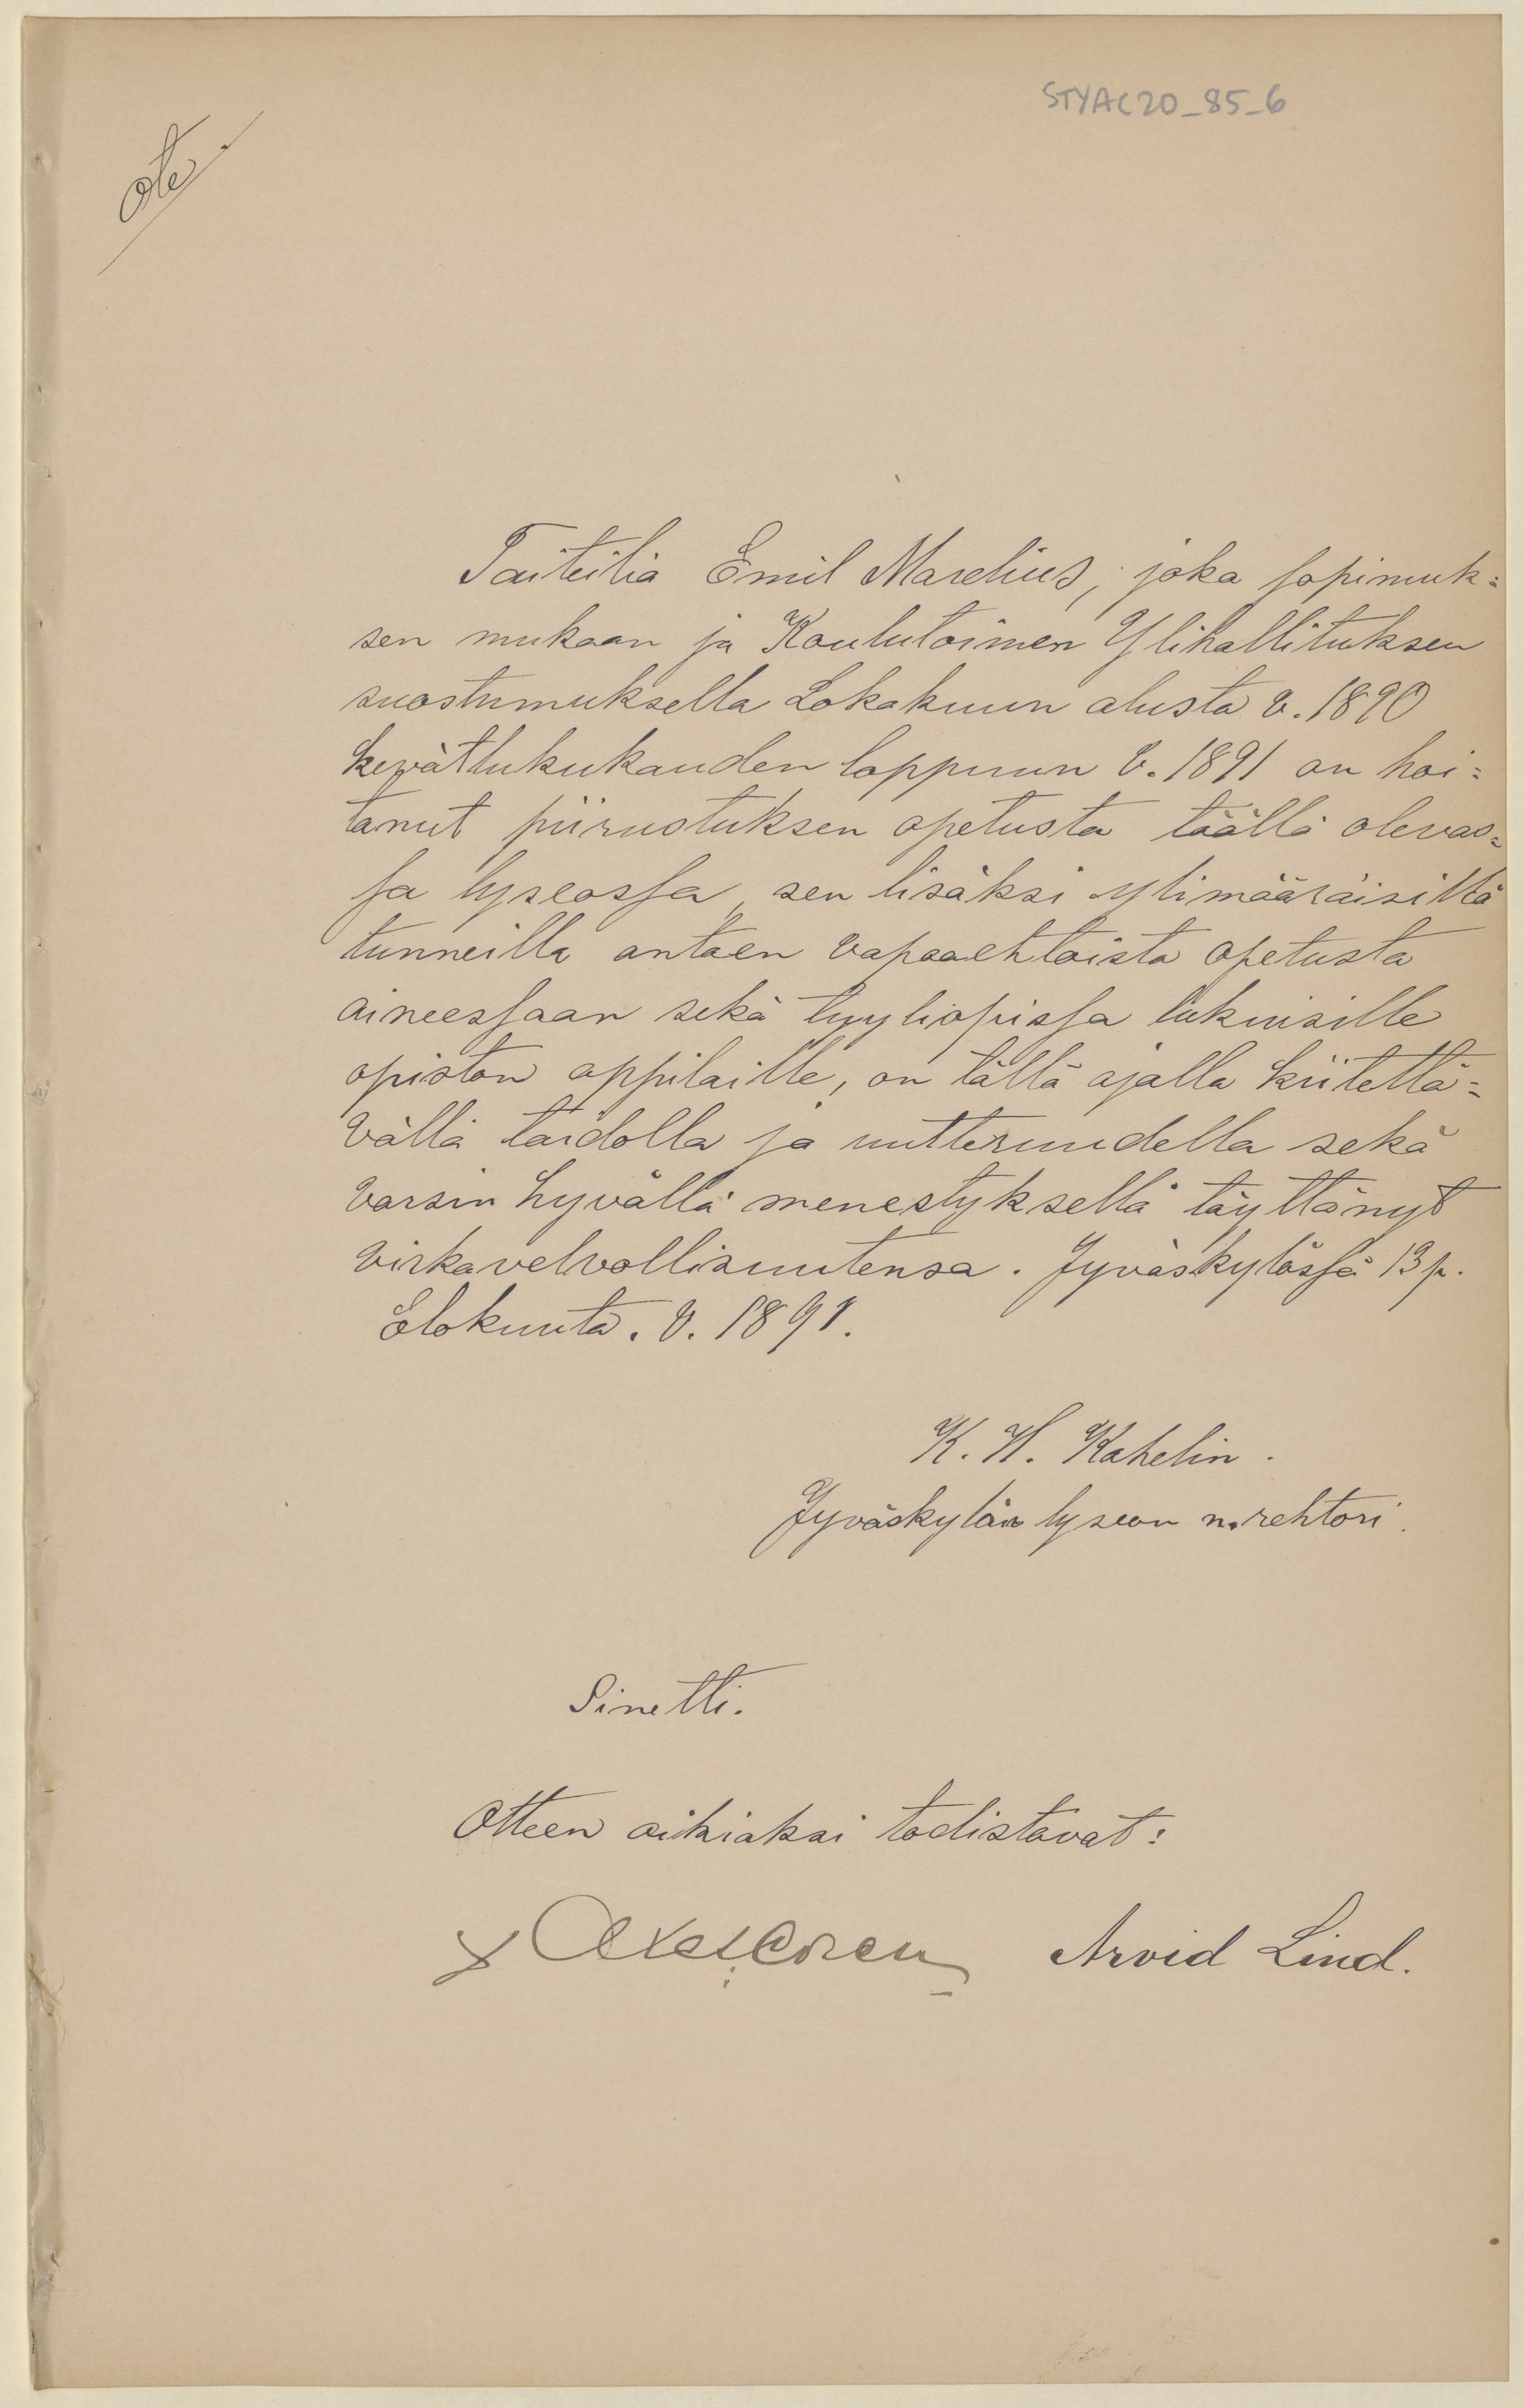 STYAC20_85_6
ote
Taiteilia Emil Marelius, joka sopimuk=
sen mukaan ja Koulutoimen Ylihallituksen
suostumuksella Lokakuun alusta v. 1890
kevätlukukauden loppuun v. 1891 on hoi=
tanut piirustuksen opetusta täällä olevas=
sa lyseossa, sen lisäksi ylimääräisillä
tunneilla antaen vapaaehtoista opetusta
aineessaan sekä tyyliopissa lukuisille
opiston oppilaille, on tällä ajalla kiitettä=
vällä taidolla ja uutteruudella sekä
varsin hyvällä menestyksellä täyttänyt
virkavelvollisuutensa. Jyväskylässä 13 p.
Elokuuta. v. 1891.
K. H. Kahelin.
Jyväskylän lyseon n. rehtori.
Sinetti.
Otteen oikiaksi todistavat:
Arvid Lind.